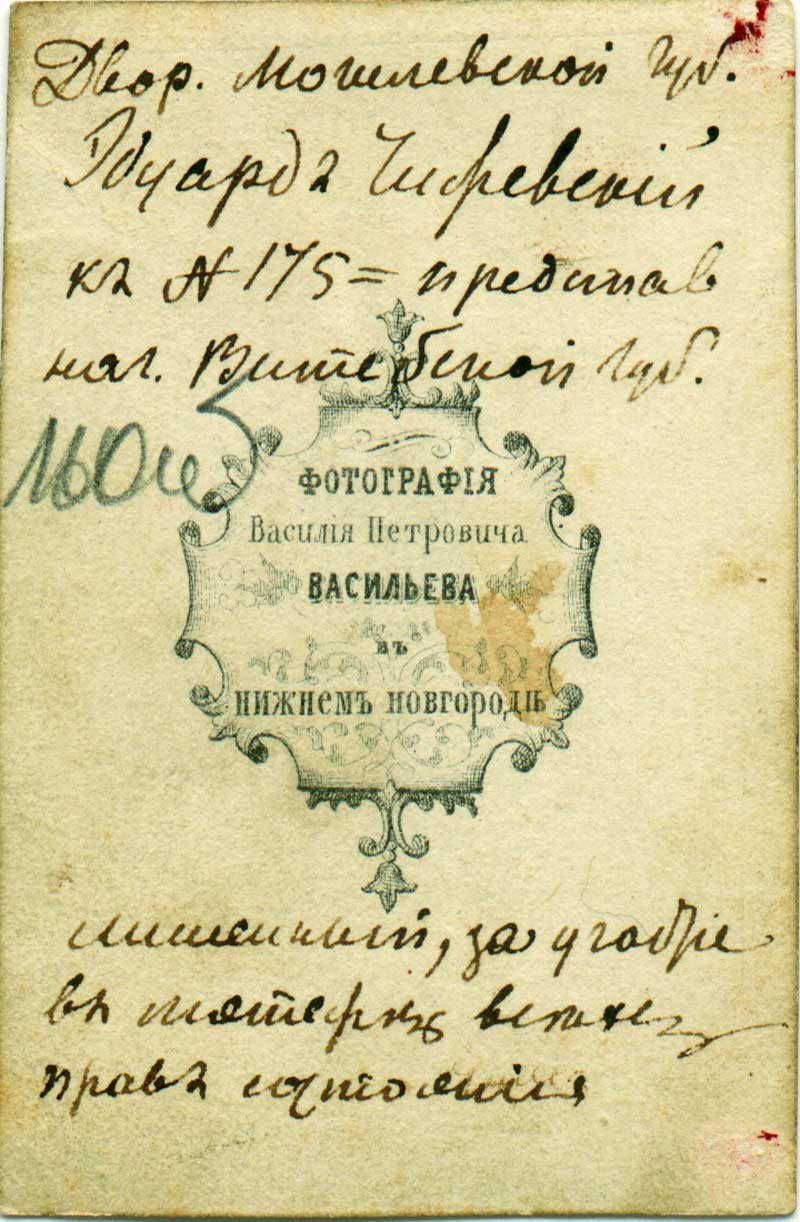 Двор. Могилевской губ.
Эдуардъ Чижевскій
къ № 175 = представ
нач. Витебской губ.
ФОТОГРАФІЯ
Василія Петровича
ВАСИЛЬЕВА
въ
НИЖНЕМЪ НОВГОРОДѢ
лишенный, за участіе
въ мятежѣ всѣхъ
правъ состоянія